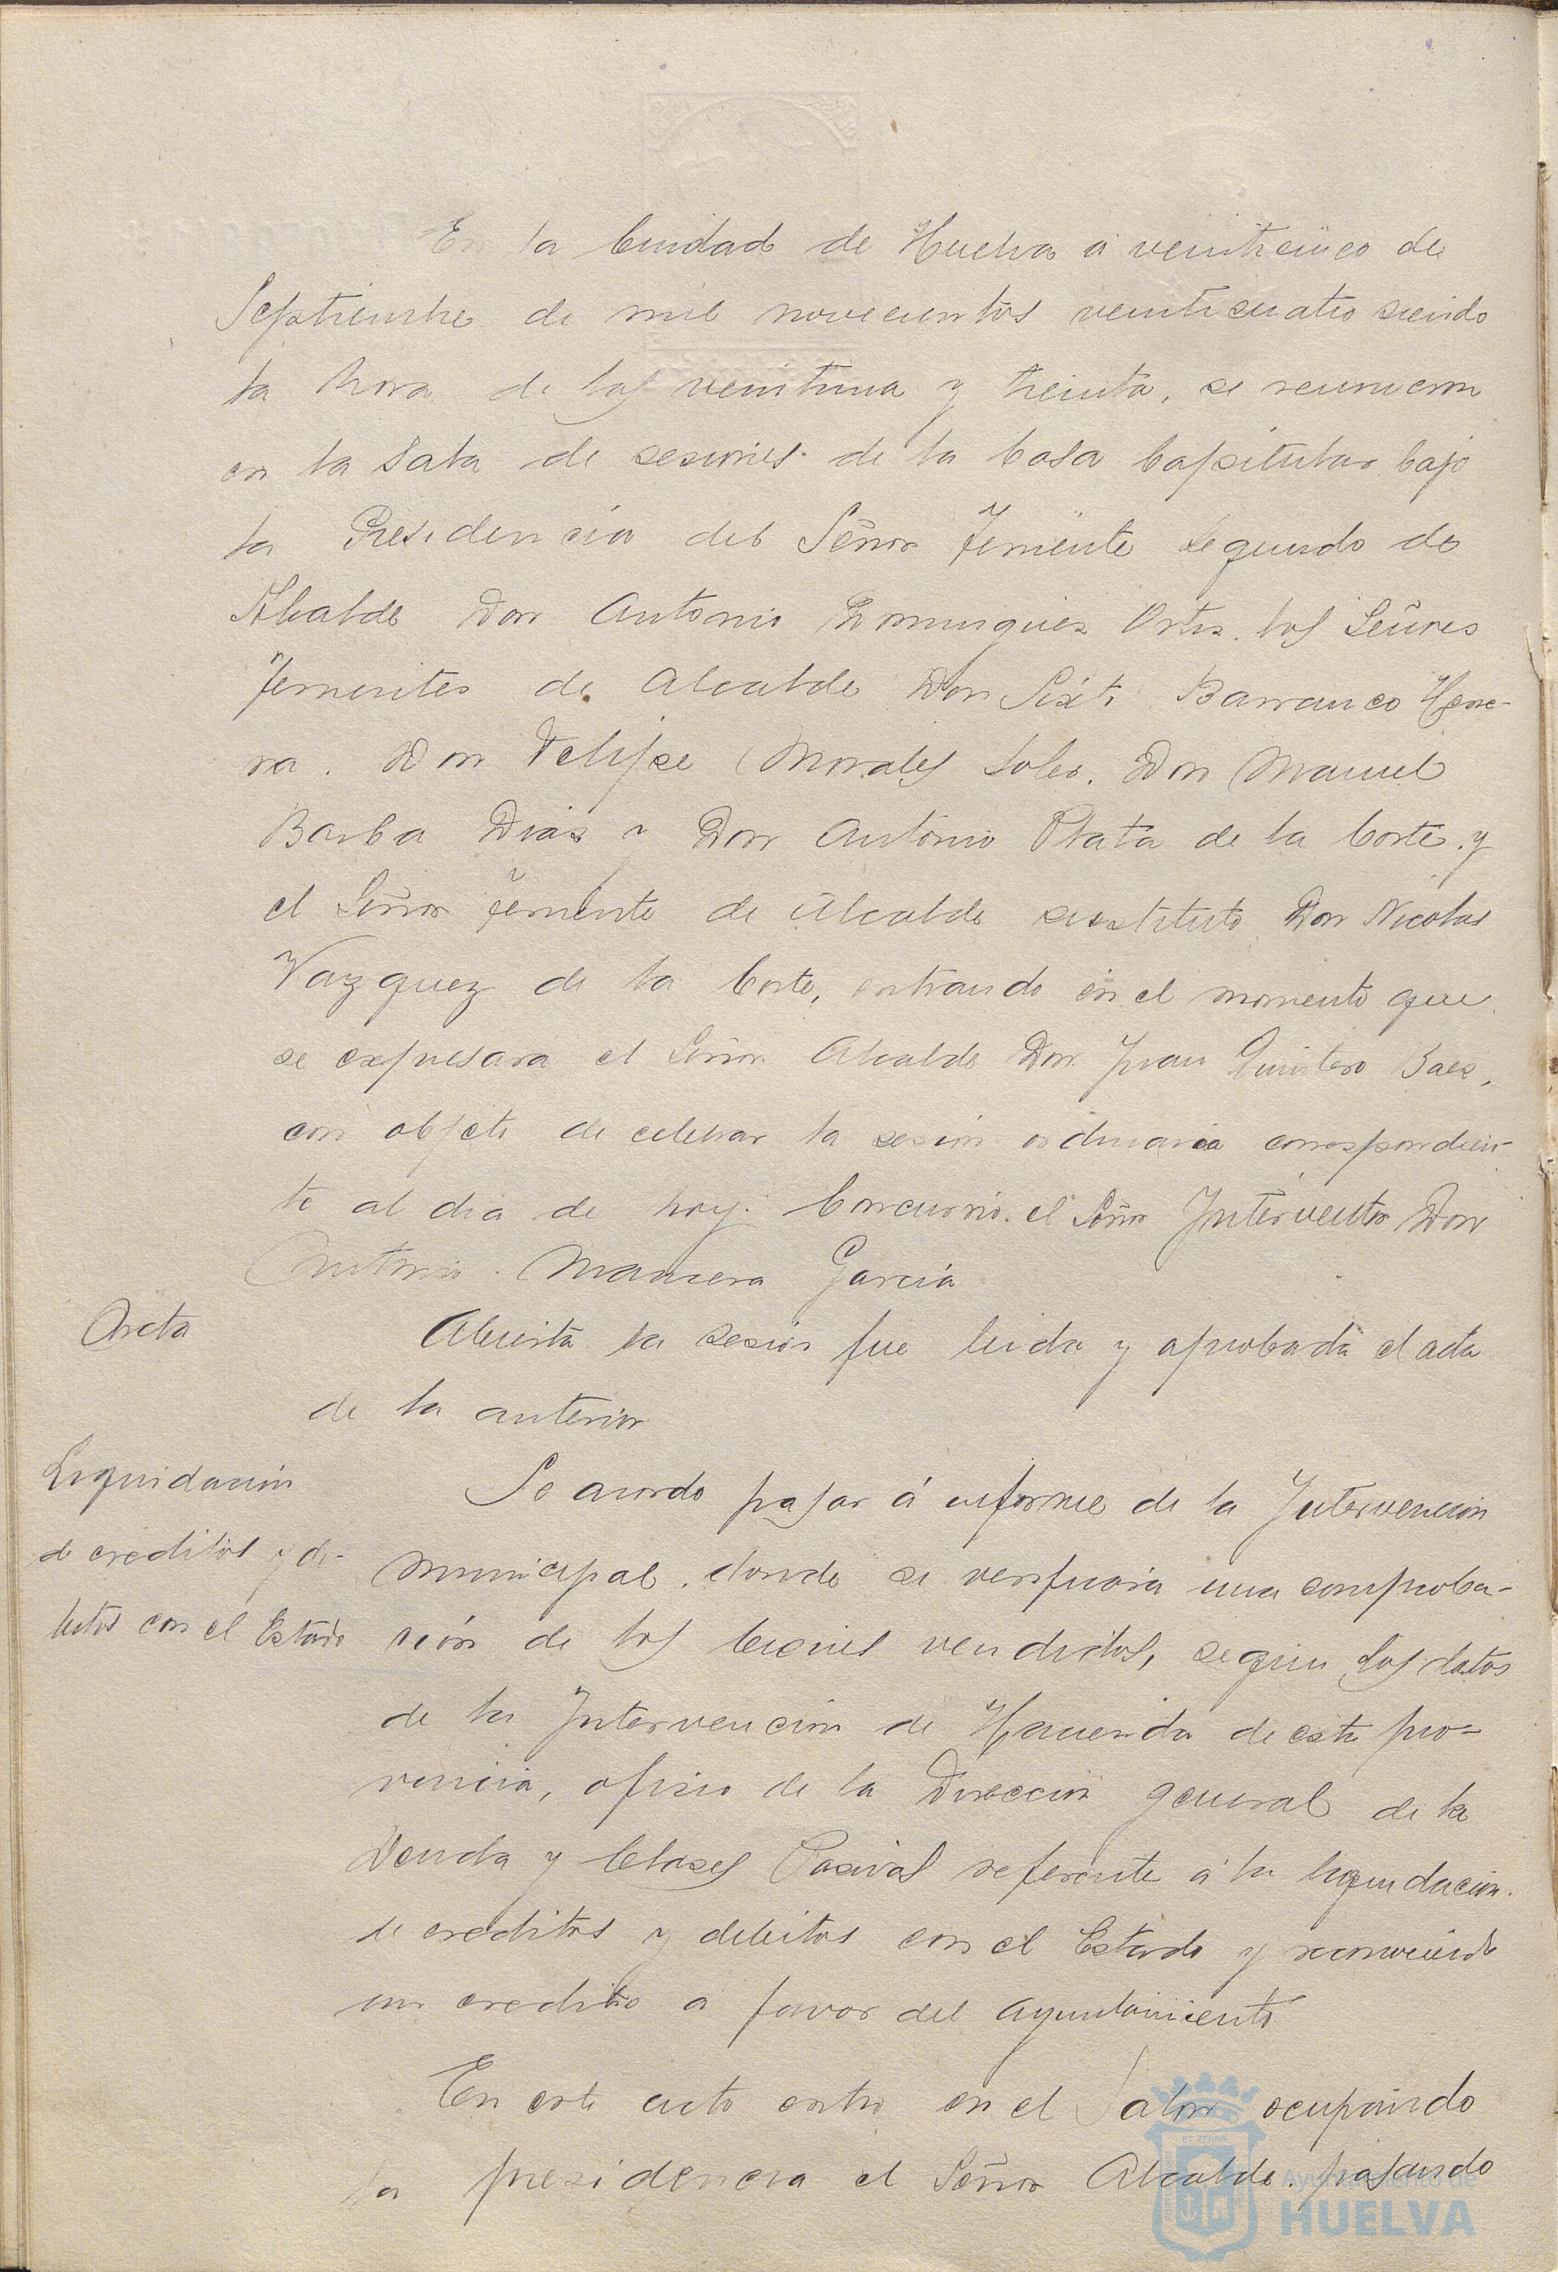 En la Ciudad de Huelva á veinticinco de
Septiembre de mil novecientos veinticuatro siendo
la hora de las veintiuna y treinta, se reunieron
en la Sala de sesiones de la Casa Capitular bajo
la Presidencia del Señor Teniente segundo de
Alcalde Don Antonio Dominguez Ortiz, los Señores
Tenientes de Alcalde Don Sixto Barranco Herre-
ra, Don Felipe Morales Soler, Don Manuel
Barba Diaz y Don Antonio Plata de la Corte, y
el Señor Teniente de Alcalde sustituto Don Nicolas
Vazquez de la Corte, entrando en el momento que
se expresará el Señor Alcalde Don Juan Quintero Baez,
con objeto de celebrar la sesion ordinaria correspondien-
te al dia de hoy. Concurrió el Señor Interventor Don
Antonio Mancera Garcia
Acta
Abierta la sesion fue leida y aprobada el acta
de la anterior
Liquidacion
de creditos y de-
bitos con el Estado
Se acordo pasar á informe de la Intervencion
municipal, donde se verificará una comproba-
ción de los bienes vendidos, segun los datos
de la Intervencion de Hacienda de esta pro-
vincia, oficio de la Direccion general de la
Deuda y Clases Pasivas referente á la liquidacion
de creditos y debitos con el Estado y reconociendo
un credito a favor del Ayuntamiento
En este acto entro en el Salon ocupando
la presidencia el Señor Alcalde, pasando
Ayuntamiento de
HUELVA